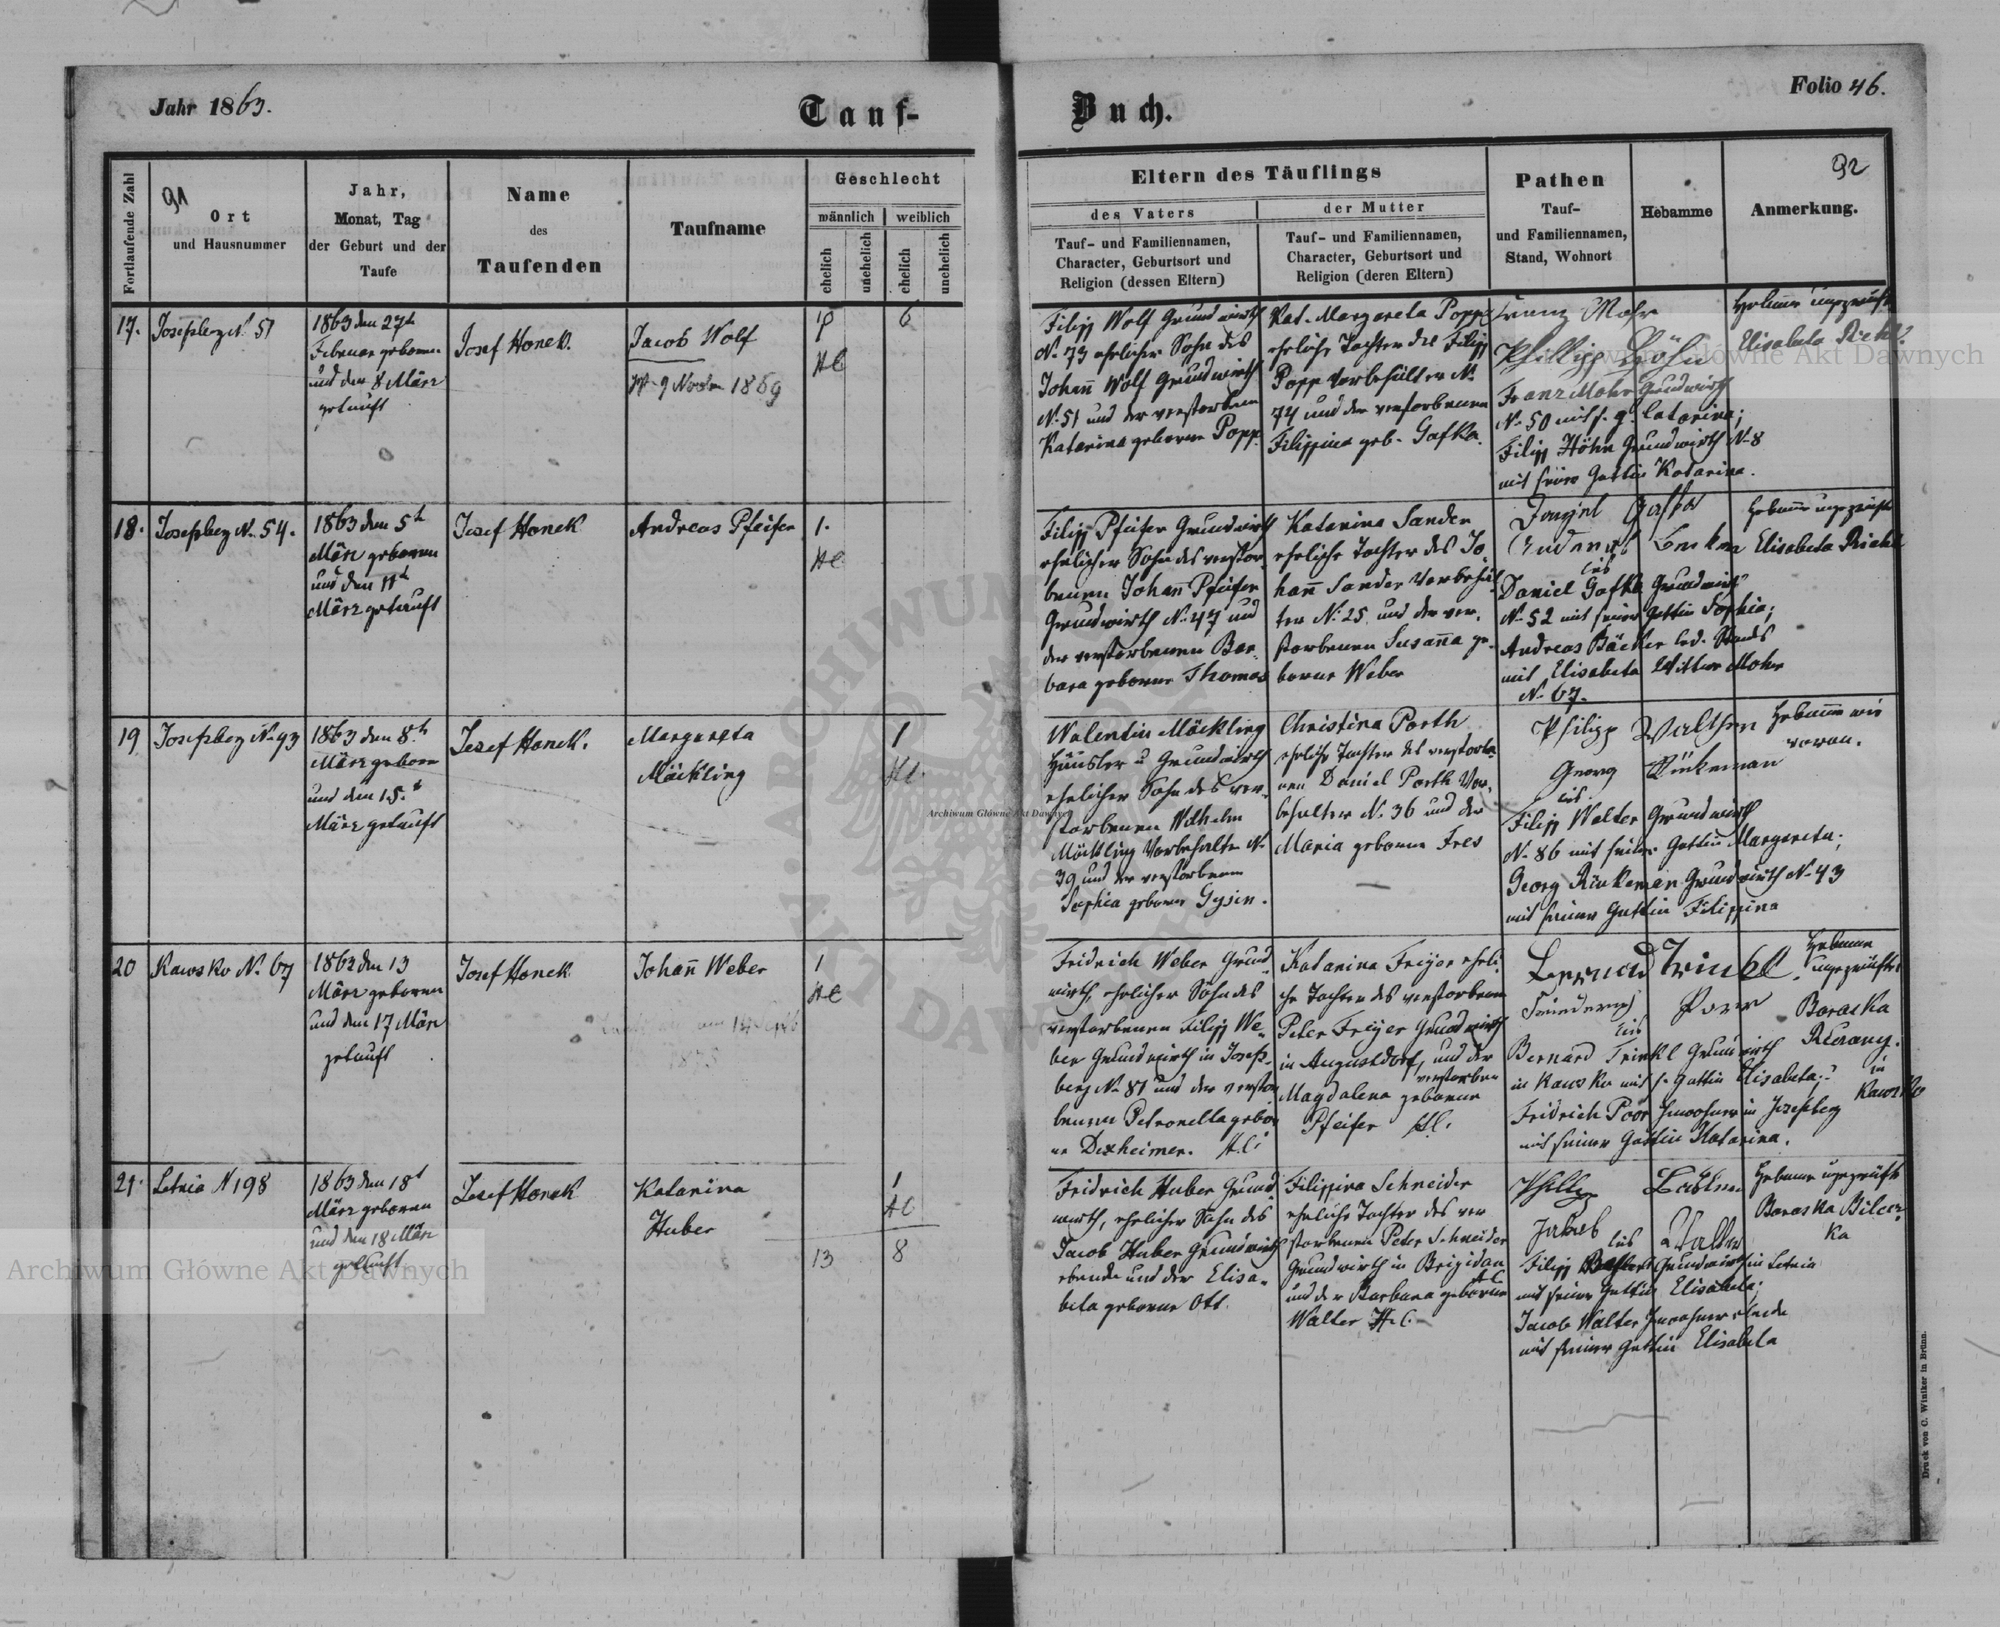 Jahr 1863.
Tauf-
Buch.
Folio 46.
Fortlaufende Zahl
91
Ort
und Hausnummer
Jahr,
Monat, Tag
der Geburt und der
Taufe
Name
des
Taufenden
Taufname
Geschlecht
männlich
weiblich
ehelich
unehelich
ehelich
unehelich
Eltern des Täuflings
des Vaters
Tauf- und Familiennamen,
Character, Geburtsort und
Religion (dessen Eltern)
der Mutter
Tauf- und Familiennamen,
Character, Geburtsort und
Religion (deren Eltern)
Pathen
Tauf-
und Familiennamen,
Stand, Wohnort
Hebamme
Anmerkung.
92
17.
Josefsberg N. 51
1863 den 27t
Februar geboren
und den 8 März
getauft
Josef Honek.
Jacob Wolf
9 Novem 1869
HC
6
Filipp Wolf Grundwirth
N. 73 ehelicher Sohn des
Johann Wolf Grundwirth
N. 51 und der verstorbenen
Katarina geborene Popp.
Kat. Margareta Popp
eheliche Tochter des Filipp
Popp Vorbehälter N.
74 und der verstorbenen
Filippina geb. Gafka.
Franz Mohr
Philipp Höhn
Franz Mohr Grundwirth
N. 50 mit s. g. Catarina;
Filipp Höhn Grundwirth N. 8
mit seiner Gattin Katarina.
Hebamme ungeprüft
Elisabeta Diehl
18.
Josefsberg N. 54.
1863 den 5t
März geboren
und den 11t
März getauft
Josef Honek
Andreas Pfeifer
1.
HC
Filipp Pfeifer Grundwirth
ehelicher Sohn des verstor-
benen Johan Pfeifer
Grundwirth N. 47 und
der verstorbenen Bar-
bara geborene Thomas
Katarina Sander
eheliche Tochter des Jo-
hann Sander Vorbehäl-
ter N. 25 und der ver-
storbenen Susanna ge-
borene Weber
Daniel Gafka Grundwirth
N. 52 mit seiner Gattin Sophia;
Andreas Bäcker led. Stands
mit Elisabeta Witwe Mohr
N. 67.
Hebamme ungeprüft
Elisabeta Diehl
19
Josefsberg N. 93
1863 den 8.t
März geboren
und den 15.t
März getauft
Josef Honek.
Margareta
Möckling
1
HC
Walentin Möckling
Häusler u Grundwirth
ehelicher Sohn des ver-
storbenen Wilhelm
Möckling Vorbehälter N.
39 und der verstorbenen
Sophia geborene Gysin.
Christina Porth
eheliche Tochter des verstorbe-
nen Daniel Porth Vor-
behalter N. 36 und der
Maria geborene Fres
Philipp Walther
Georg Rinkeman
Filipp Walter Grundwirth
N. 86 mit seiner Gattin Margareta;
Georg Rinkeman Grundwirth N. 43
mit seiner Gattin Filippina
Hebamme wie
voran.
20
Kawsko N. 67
1863 den 13
März geboren
und den 17 März
getauft
Josef Honek
Johann Weber
1
HC
Fridrich Weber Grund-
wirth, ehelicher Sohn des
verstorbenen Filipp We-
ber Grundwirth in Josefs-
berg N. 81 und der verstor-
benen Petronella gebor-
ne Dexheimer. HC
Katarina Freyer eheli-
che Tochter des verstorbenen
Peter Freyer Grundwirth
in Augustdorf, und der
verstorben
Magdalena geborene
Pfeifer HC.
Bernard Trinkl Grundwirth
in Kawsko mit s. Gattin Elisabeta;
Fridrich Poor Inwohner in Josefsberg
mit seiner Gattin Katarina.
Hebamme
ungeprüfte
Baraska
in
Kawsko
21.
Letnia N 198
1863 den 18t
März geboren
und den 18 März
getauft.
Josef Honek
Katarina
Huber
1
HC
13
8
Fridrich Huber Grund-
wirth, ehelicher Sohn des
Jacob Huber Grundwirth
ebenda und der Elisa-
beta geborene Ott.
Filippina Schneider
eheliche Tochter des ver
storbenen Peter Schneider
Grundwirth in Brigidau
HC
und der Barbara geborene
Walter H.C.
Jakob Walter
Grundwirth in Letnia
mit seiner Gattin Elisabeta;
Jacob Walter Inwohner ebenda
mit seiner Gattin Elisabeta
Hebamme ungeprüft
Baraska Bilecz-
ka
Druck von C. Winiker in Brünn.
Archiwum Główne Akt Dawnych
Archiwum Główne Akt Dawnych
Archiwum Główne Akt Dawnych
ARCHIWUM
AKT DAWN